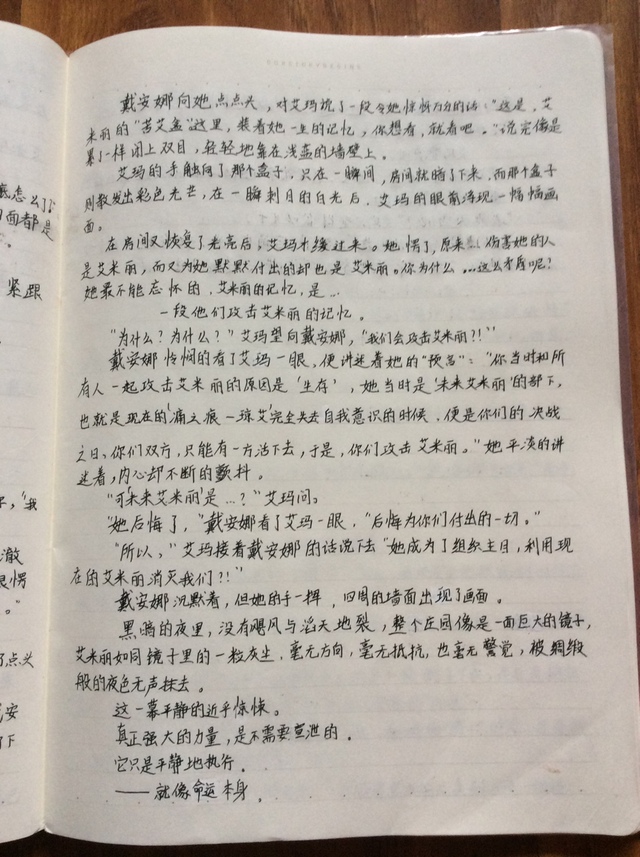 底怎么了？
面都是
"。
紧跟
"我
澈
愣
。"
点头
安
下
戴安娜向她点点头，对艾玛说了一段令她惊讶万分的话："这是，艾
米丽的"苦艾盒"这里，装着她一生的记忆，你想看，就看吧。"说完像是
累了一样闭上双目，轻轻地靠在浅蓝的墙壁上。
艾玛的手触向了那个盒子，只在一瞬间，房间就暗了下来，而那个盒子
则散发出彩色光芒，在一瞬刺目的白光后，艾玛的眼前浮现一幅幅画
面。
在房间又恢复了光亮后，艾玛才缓过来。她愣了，原来…伤害她的人
是艾米丽，而又为她默默付出的却也是艾米丽。你为什么…这么矛盾呢？
她最不能忘怀的，艾米丽的记忆，是…
一段他们攻击艾米丽的记忆。
"为什么？为什么？"艾玛望向戴安娜，"我们会攻击艾米丽？!"
戴安娜怜悯的看了艾玛一眼，便讲述着她的"预言"："你当时和所
有人一起攻击艾米丽的原因是'生存'，她当时是'未来艾米丽'的部下，
也就是现在的'痛之痕—琼艾'完全失去自我意识的时候，便是你们的决战
之日、你们双方，只能有一方活下去，于是，你们攻击艾米丽。"她平淡的讲
述着，内心却不断的颤抖。
"可'未来艾米丽'是…？"艾玛问。
"她后悔了，"戴安娜看了艾玛一眼，"后悔为你们付出的一切。"
"所以，"艾玛接着戴安娜的话说下去"她成为了组织主目，利用现
在的艾米丽消灭我们？!"
戴安娜沉默着，但她的手一挥，四周的墙面出现了画面。
黑暗的夜里，没有飓风与滔天地裂，整个庄园像是一面巨大的镜子，
艾米丽如同镜子里的一粒灰尘，毫无方向，毫无抵抗，也毫无警觉，被绸缎
般的夜色无声抹去。
这一幕平静的近乎惊悚。
真正强大的力量，是不需要宣泄的。
它只是平静地执行。
——就像命运本身。